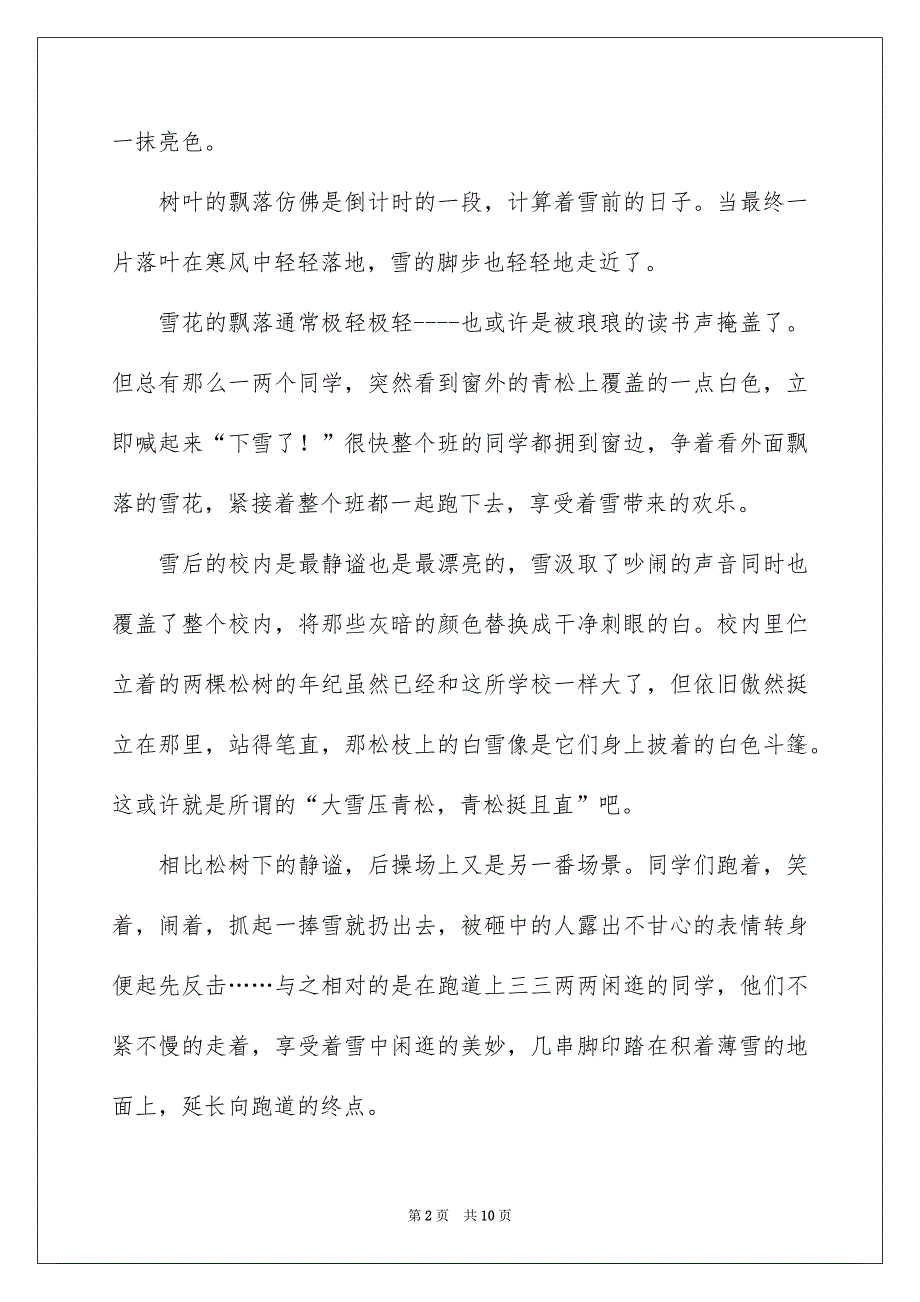 一抹亮色。
树叶的飘落仿佛是倒计时的一段，计算着雪前的日子。当最终一
片落叶在寒风中轻轻落地，雪的脚步也轻轻地走近了。
雪花的飘落通常极轻极轻----也或许是被琅琅的读书声掩盖了。
但总有那么一两个同学，突然看到窗外的青松上覆盖的一点白色，立
即喊起来“下雪了！”很快整个班的同学都拥到窗边，争着看外面飘
落的雪花，紧接着整个班都一起跑下去，享受着雪带来的欢乐。
雪后的校内是最静谧也是最漂亮的，雪汲取了吵闹的声音同时也
覆盖了整个校内，将那些灰暗的颜色替换成干净刺眼的白。校内里伫
立着的两棵松树的年纪虽然已经和这所学校一样大了，但依旧傲然挺
立在那里，站得笔直，那松枝上的白雪像是它们身上披着的白色斗篷。
这或许就是所谓的“大雪压青松，青松挺且直”吧。
相比松树下的静谧，后操场上又是另一番场景。同学们跑着，笑
着，闹着，抓起一捧雪就扔出去，被砸中的人露出不甘心的表情转身
便起先反击……与之相对的是在跑道上三三两两闲逛的同学，他们不
紧不慢的走着，享受着雪中闲逛的美妙，几串脚印踏在积着薄雪的地
面上，延长向跑道的终点。
第 2 页 共 10 页